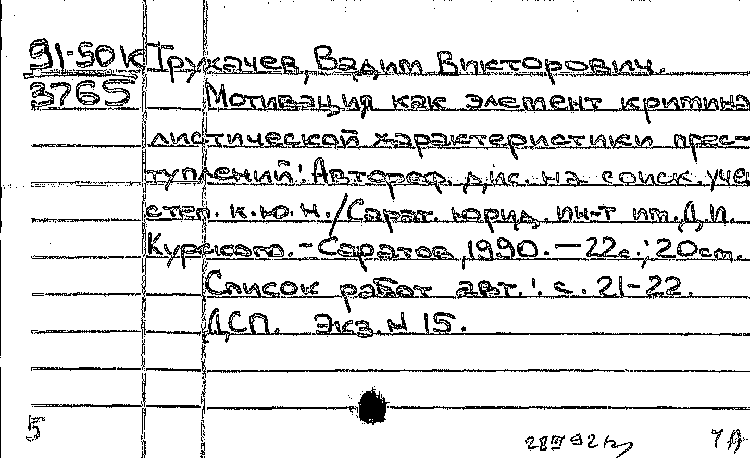 91-50к Трухачев, Вадим Викторович.
3765 Мотивация как элемент кримина
листической характеристики прес-
туплений: Автореф. дис. на соиск. уче
степ. к.ю.н. / Сарат. юрид. ин-т им. Д.И.
Курского. - Саратов, 1990. - 22с.; 20см.
Список работ авт.: с. 21-22.
ДСП. Экз. N 15.
5 28 III 92